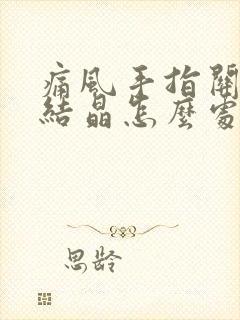 痛風手指關
結晶怎麼處
思齡